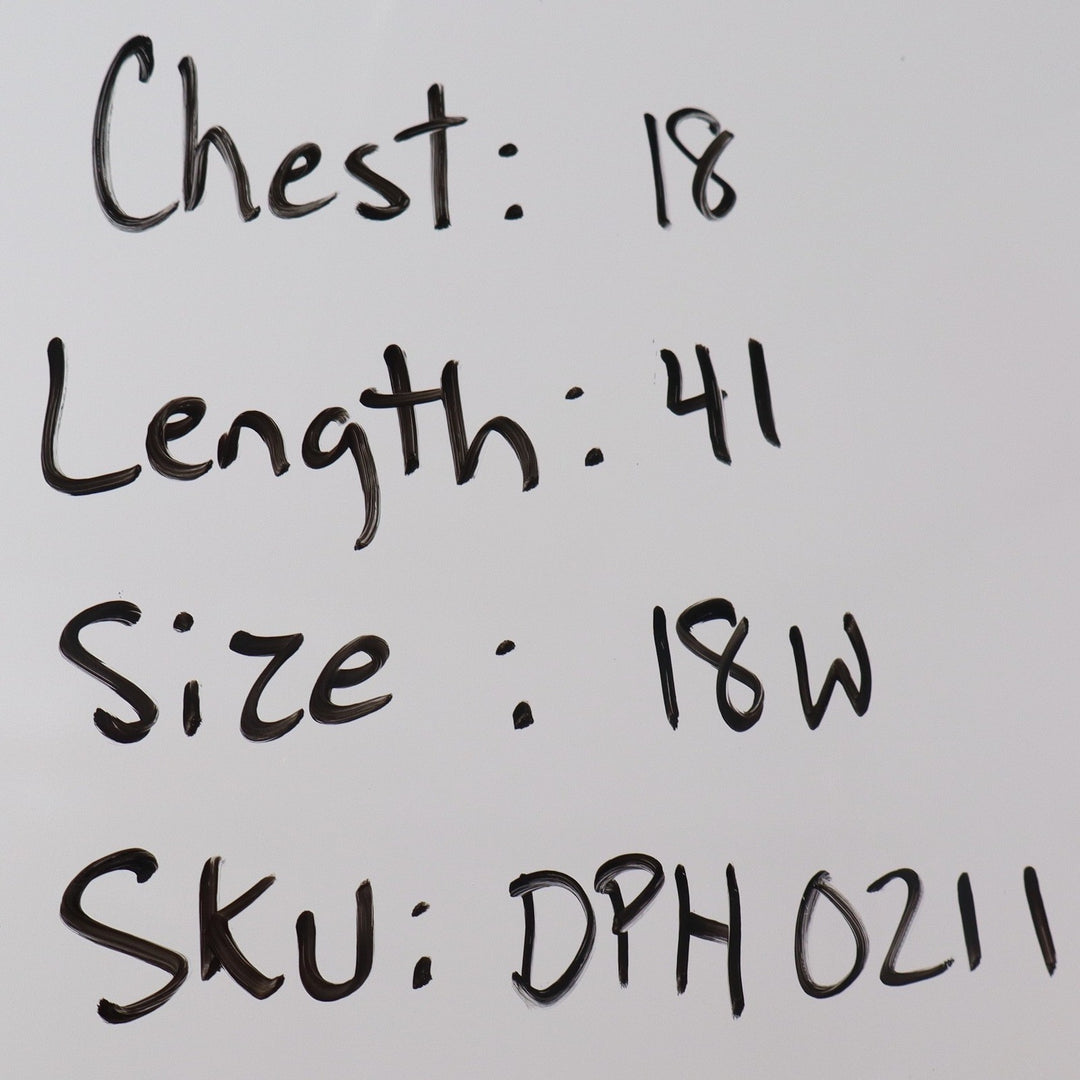 Chest: 18
Length: 41
Size : 18W
SKU: DPH0211